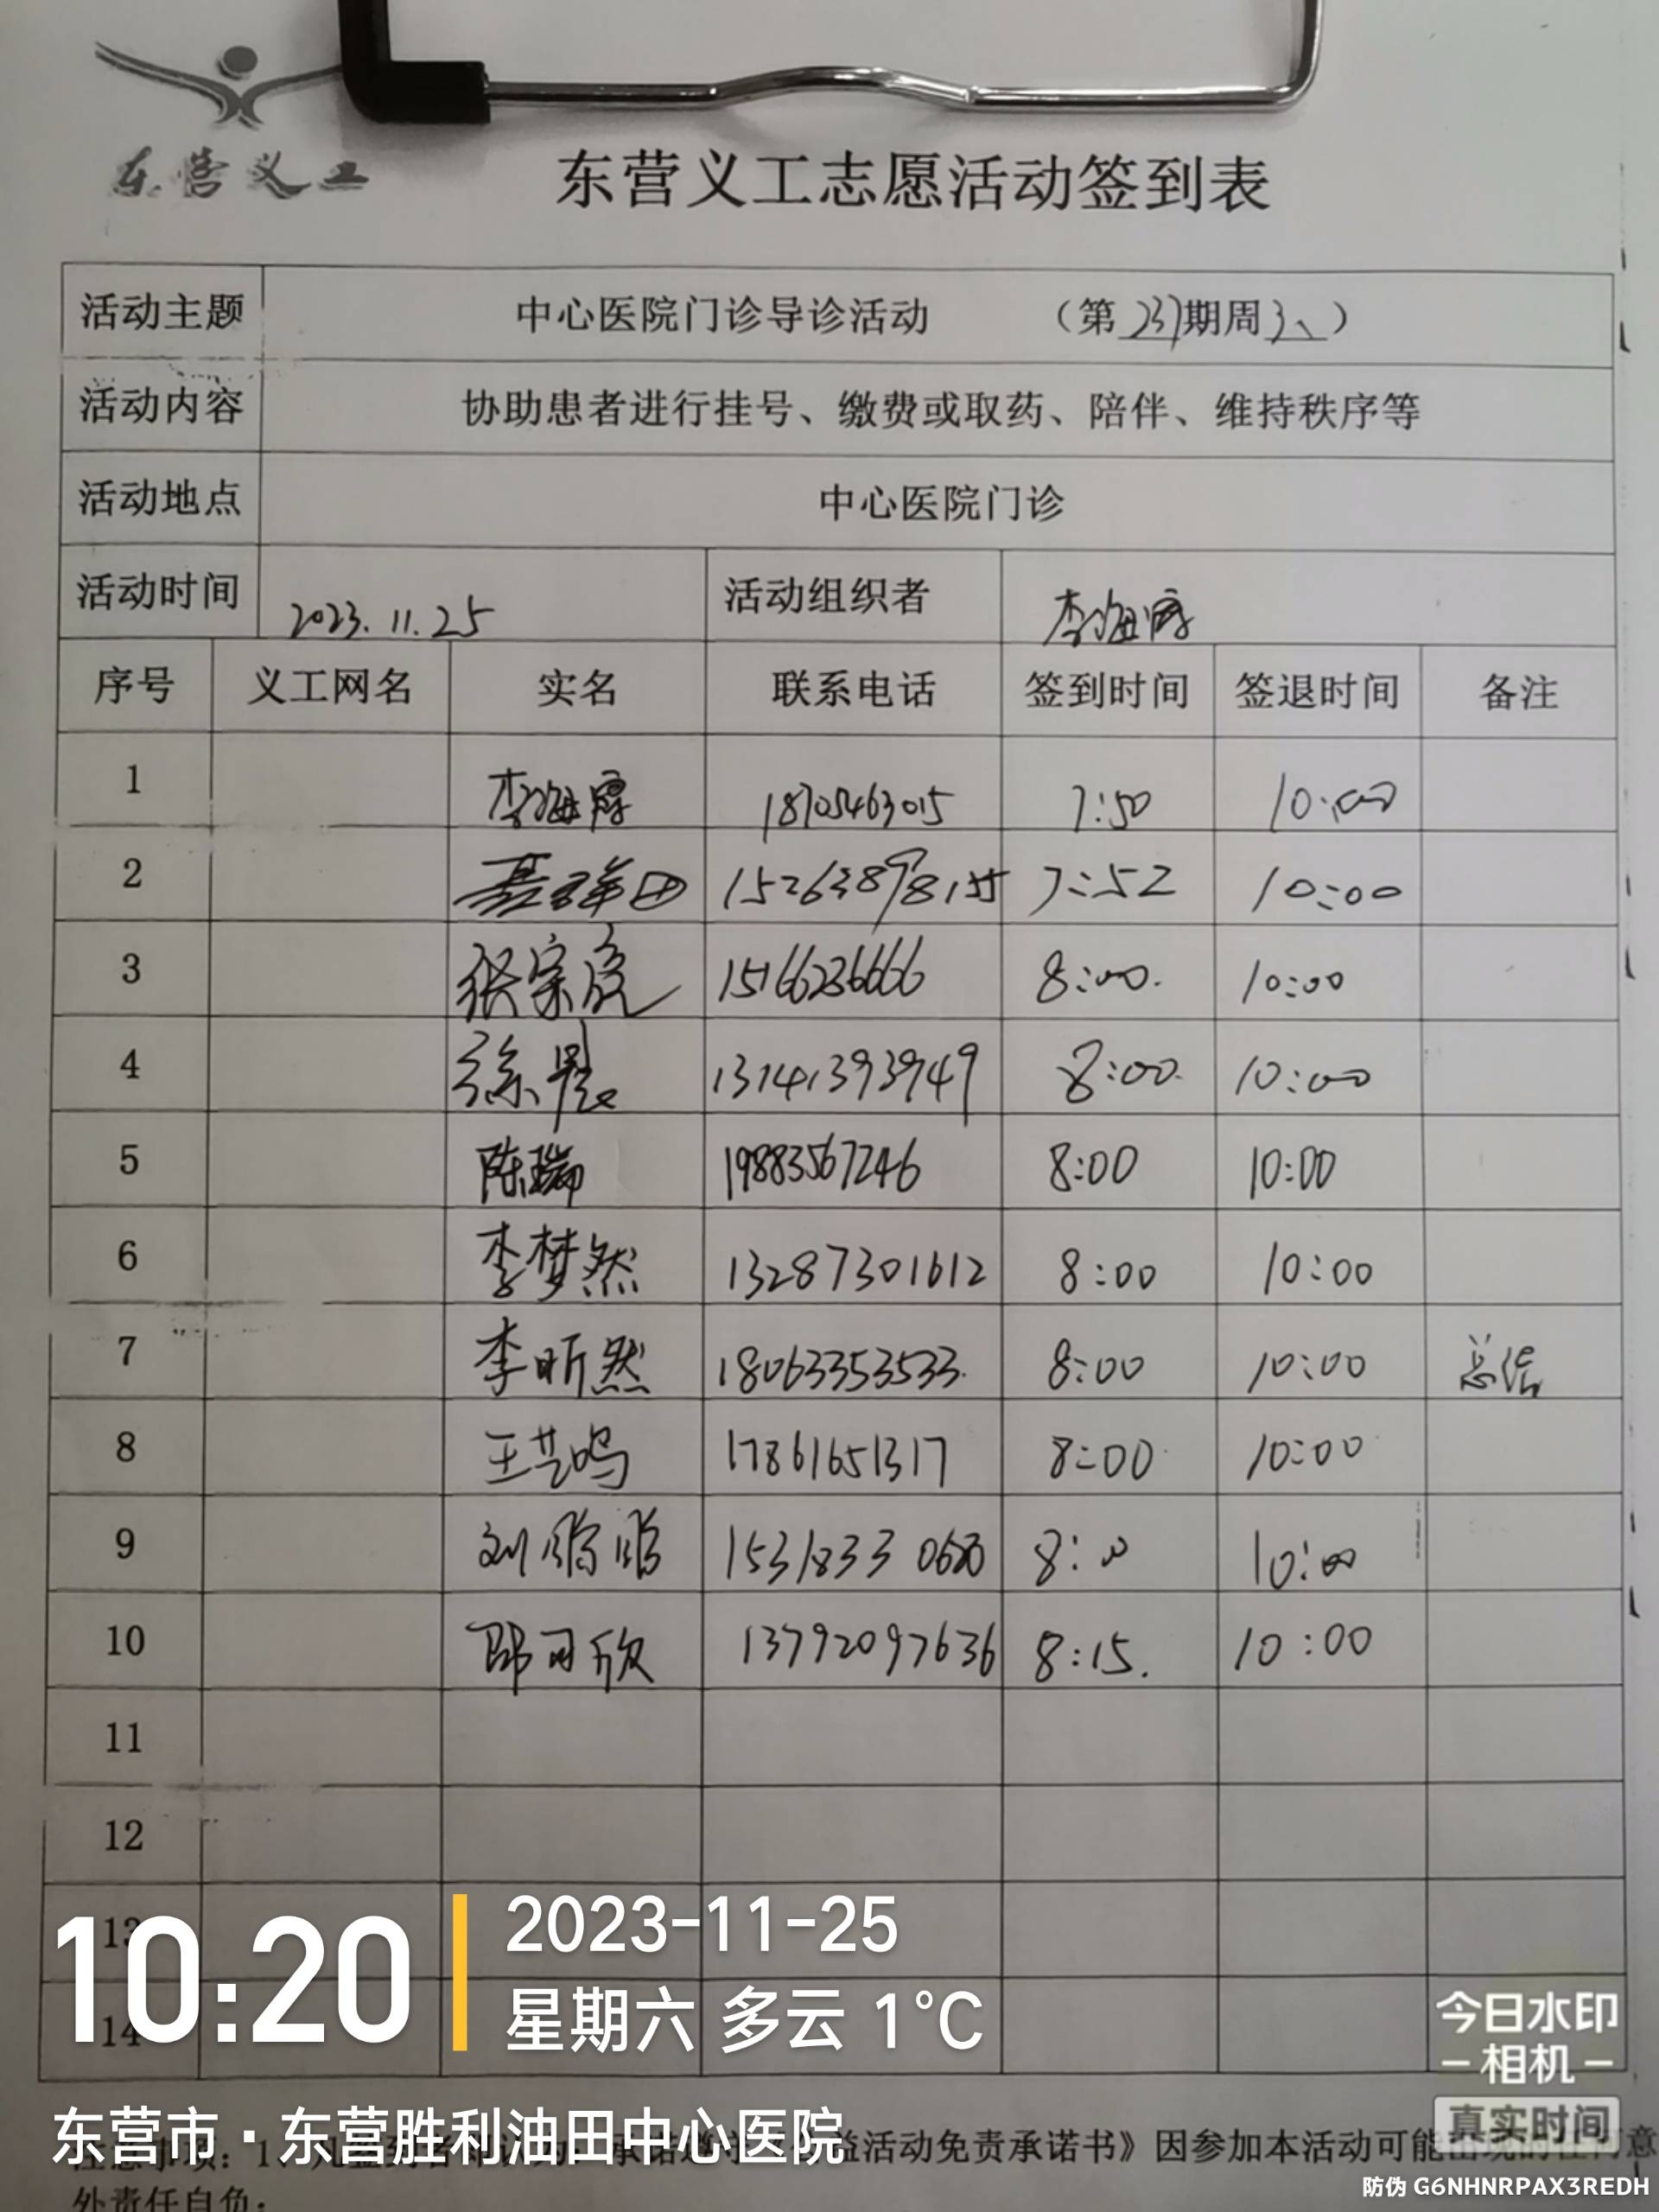 东营义工
东营义工志愿活动签到表
活动主题 中心医院门诊导诊活动 （第237期周六）
活动内容 协助患者进行挂号、缴费或取药、陪伴、维持秩序等
活动地点 中心医院门诊
活动时间 2023.11.25 活动组织者 李海霞
序号 义工网名 实名 联系电话 签到时间 签退时间 备注
1 李海霞 18705463015 7:50 10:00
2 15263898155 7:52 10:00
3 张宗 15166236666 8:00 10:00
4 徐晨 13141393949 8:00 10:00
5 陈瑞 19883567246 8:00 10:00
6 李梦然 13287301612 8:00 10:00
7 李昕然 18063353533 8:00 10:00 总结
8 王艺鸣 17861651317 8:00 10:00
9 刘 8:00 10:00
10 13792097636 8:15. 10:00
11
12
13
14
10:20
2023-11-25
星期六 多云 1°C
东营市·东营胜利油田中心医院
今日水印
相机
真实时间
注意事项：1、活动免责承诺书》因参加本活动可能
外责任自负；
防伪 G6NHNRPAX3REDH